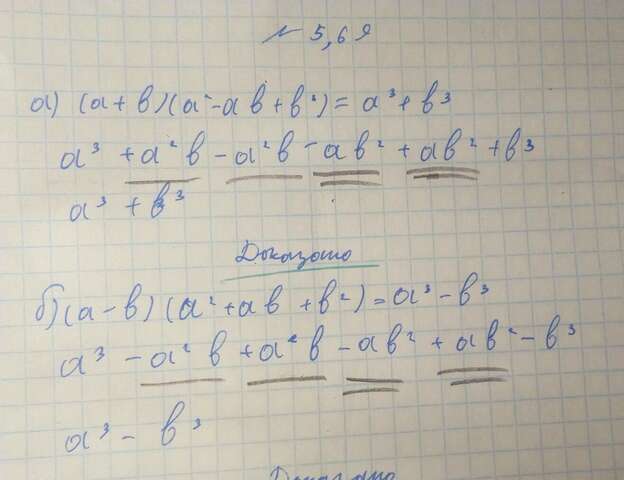 № 5,69
а) (a + b)(a² - ab + b²) = a³ + b³
a³ + a²b - a²b - ab² + ab² + b³
a³ + b³
Доказано
б) (a - b)(a² + ab + b²) = a³ - b³
a³ - a²b + a²b - ab² + ab² - b³
a³ - b³
Доказано